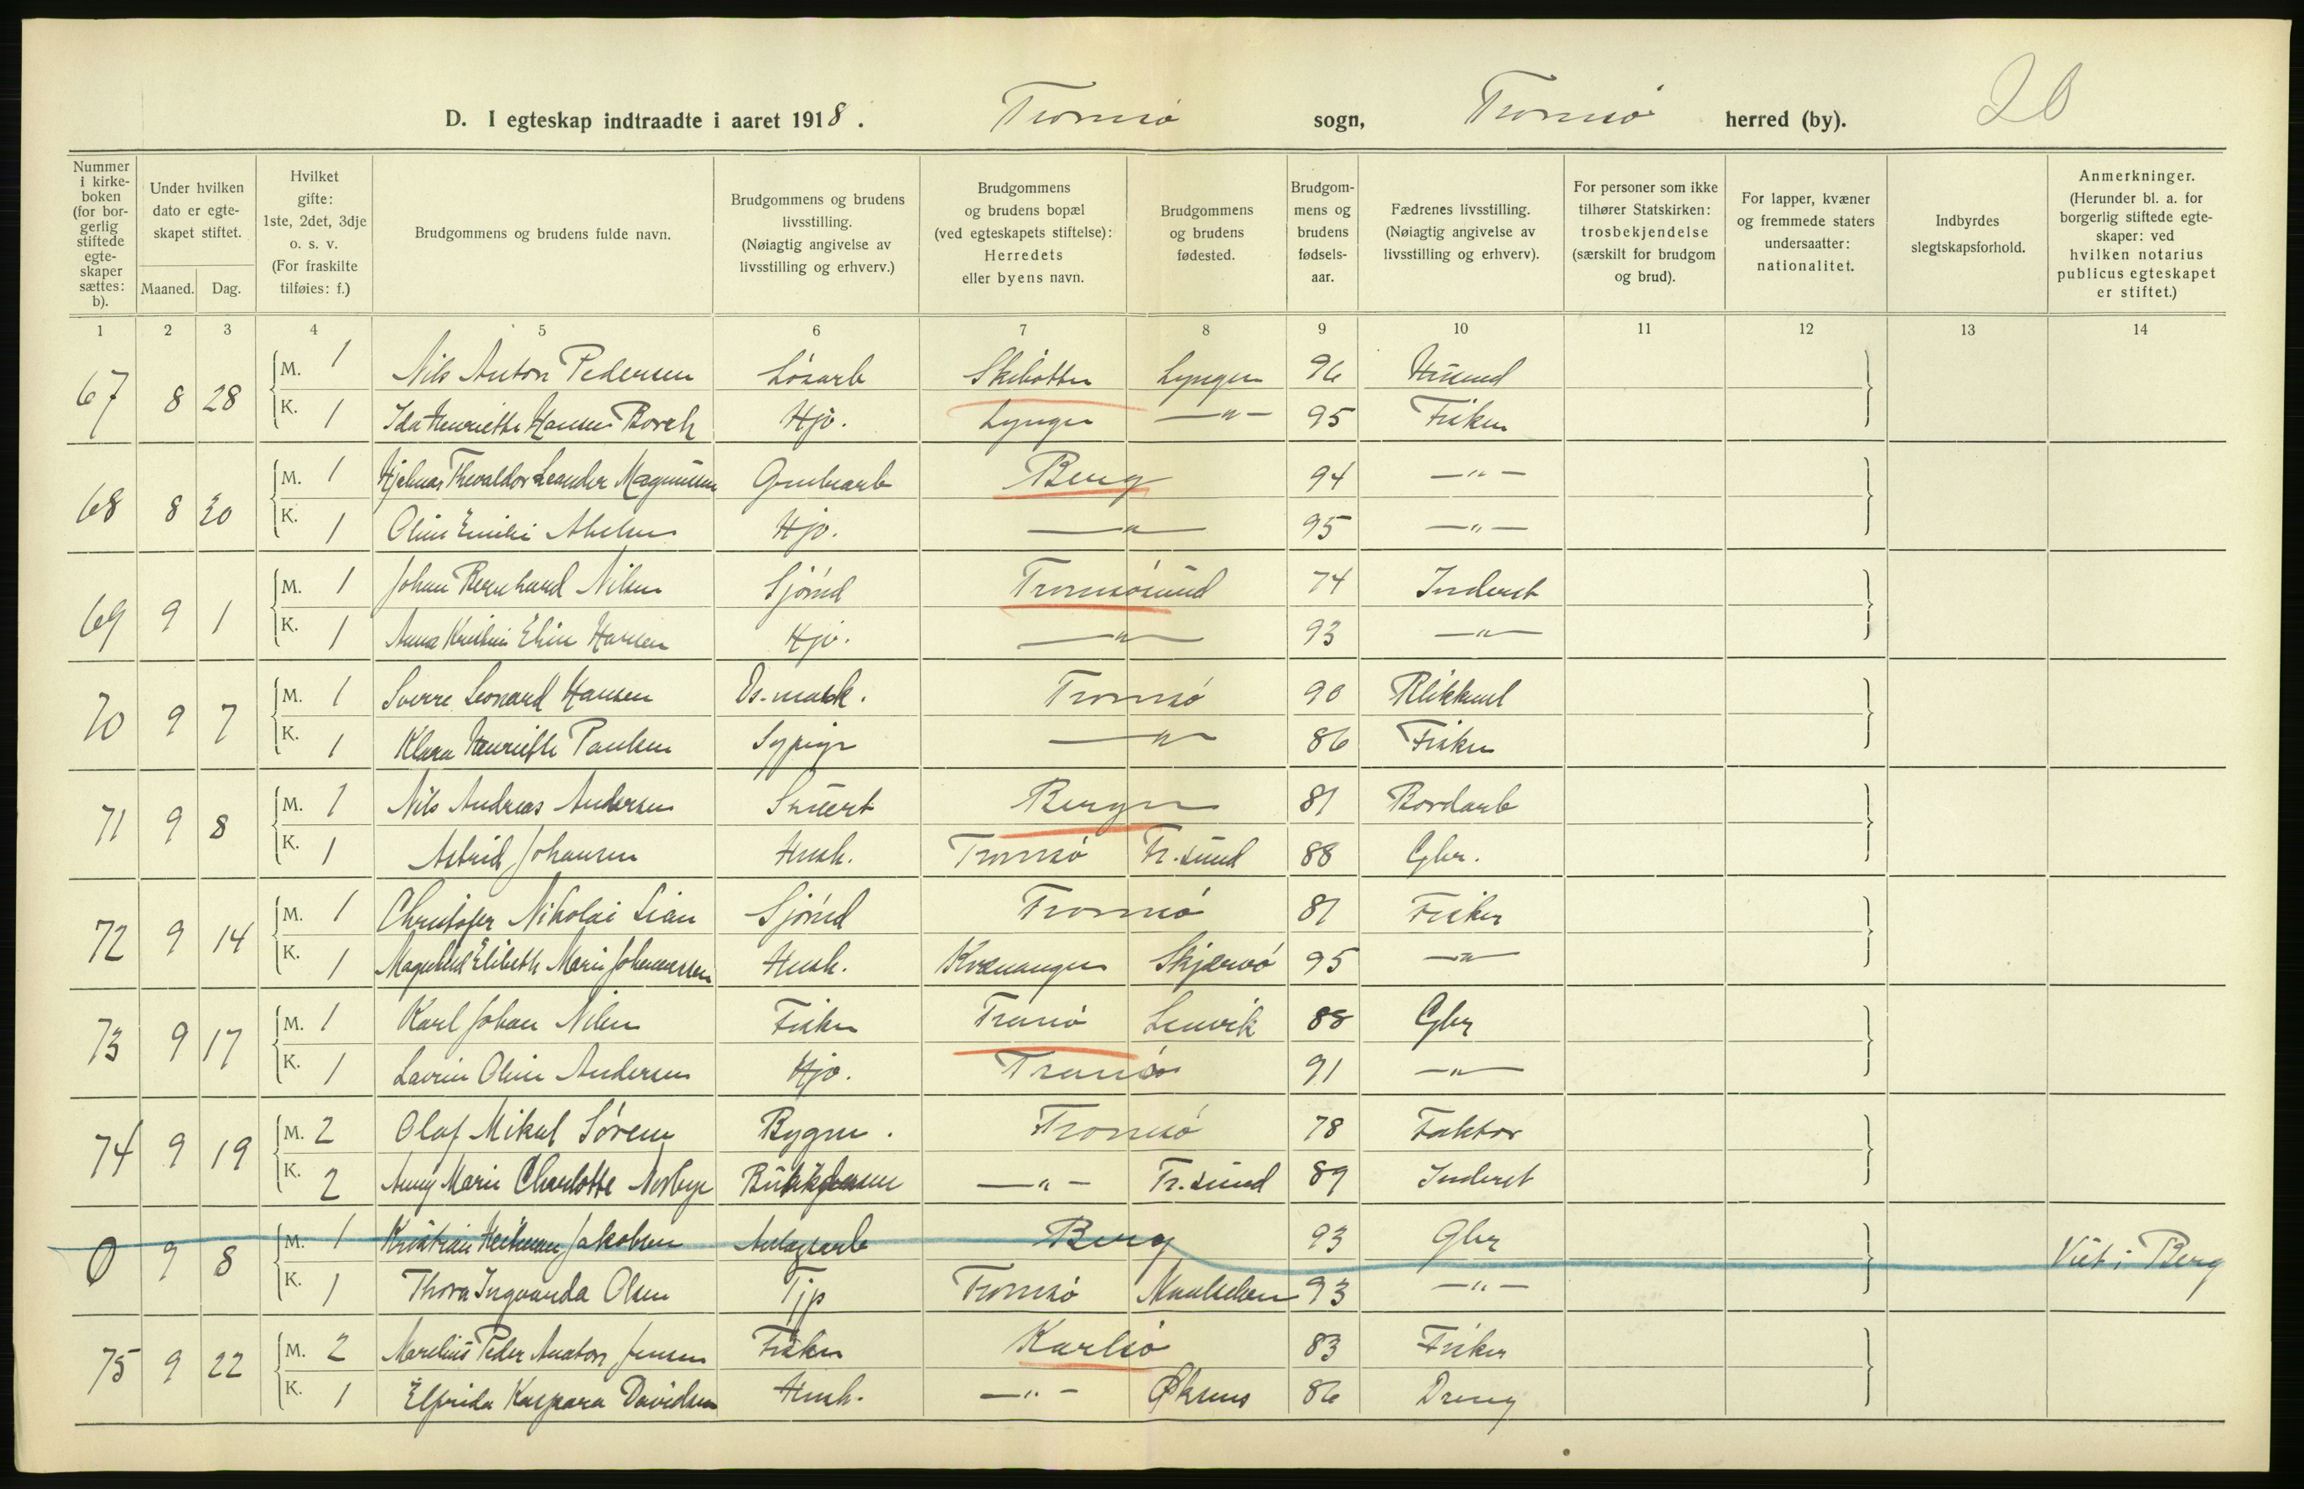 D. I egteskap indtraadte i aaret 1918. Tromsø sogn, Tromsø herred (by). 20
Nummer i kirkeboken (for borgerlig stiftede egteskaper sættes: b).
Under hvilken dato er egteskapet stiftet.
Maaned. Dag.
Hvilket gifte: 1ste, 2det, 3dje o. s. v. (For fraskilte tilføies: f.)
Brudgommens og brudens fulde navn.
Brudgommens og brudens livsstilling. (Nøiagtig angivelse av livsstilling og erhverv.)
Brudgommens og brudens bopæl (ved egteskapets stiftelse): Herredets eller byens navn.
Brudgommens og brudens fødested.
Brudgommens og brudens fødselsaar.
Fædrenes livsstilling. (Nøiagtig angivelse av livsstilling og erhverv).
For personer som ikke tilhører Statskirken: trosbekjendelse (særskilt for brudgom og brud).
For lapper, kvæner og fremmede staters undersaatter: nationalitet.
Indbyrdes slegtskapsforhold.
Anmerkninger. (Herunder bl. a. for borgerlig stiftede egteskaper: ved hvilken notarius publicus egteskapet er stiftet.)
1 2 3 4 5 6 7 8 9 10 11 12 13 14
67 8 28 M. 1 Nils Anton Pedersen Løsarb Skibotten Lyngen 96
K. 1 Ida Henriette Hansen Borch Hjv. Lyngen —"— 95 Fisker
68 8 30 M. 1 Hjelmar Thevaldor Leander Magnussen Grubearb Berg 94 —"—
K. 1 Oline Emilie Abelsen Hjv. —"— 95 —"—
69 9 1 M. 1 Johan Bernhard Nilsen Sjømd Tromsøsund 74 Inderst
K. 1 Anna Kristine Eline Hansen Hjv. —"— 93 —"—
70 9 7 M. 1 Sverre Leonard Hansen Ds-mask. Tromsø 90 Blikkensl
K. 1 Klara Henriette Paulsen Sypige —"— 86 Fisker
71 9 8 M. 1 Nils Andreas Andersen Snüert Bergen 81 Bordarb
K. 1 Astrid Johansen Hush. Tromsø Tr.sund 88 Gbr.
72 9 14 M. 1 Christofer Nikolai Lian Sjømd Tromsø 81 Fisker
K. 1 Magnhild Elibeth Marie Johannessen Hush. Kvænangen Skjærvø 95 —"—
73 9 17 M. 1 Karl Johan Nilsen Fisker Tranø Lenvik 88 Gbr
K. 1 Lavrine Oline Andersen Hjv. Tranø 91 —"—
74 9 19 M. 2 Olaf Mikal Sørensen Bygm. Tromsø 78 Faktor
K. 2 Anny Marie Charlotte Nesbye —"— Tr.sund 89 Inderst
0 9 8 M. 1 Kristian Heitman Jakobsen Anlægsarb Berg 93 Gbr Viet i Berg
K. 1 Thora Ingvarda Olsen Tjp Tromsø Maalselven 93 —"—
75 9 22 M. 2 Marelius Peder Anaton Jensen Fisker Karlsø 83 Fisker
K. 1 Elfrida Kaspara Davidsen Hush. —"— Øksnes 86 Dreng